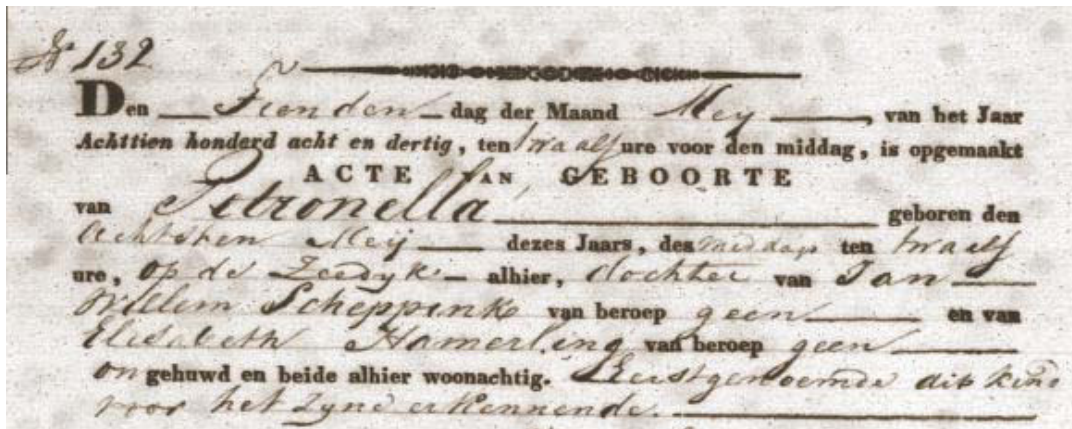 No 132
Den Tienden dag der Maand Mey, van het Jaar
Achttien honderd acht en dertig, ten twaalf ure voor den middag, is opgemaakt
ACTE VAN GEBOORTE
van Petronella geboren den
Achtsten Meij dezes Jaars, des middags ten twaalf
ure, op de Zeedyk alhier, dochter van Jan
Willem Scheppink van beroep geen en van
Elisabeth Hamerling van beroep geen
ongehuwd en beide alhier woonachtig. Eerstgenoemde dit kind
voor het zyne erkennende.